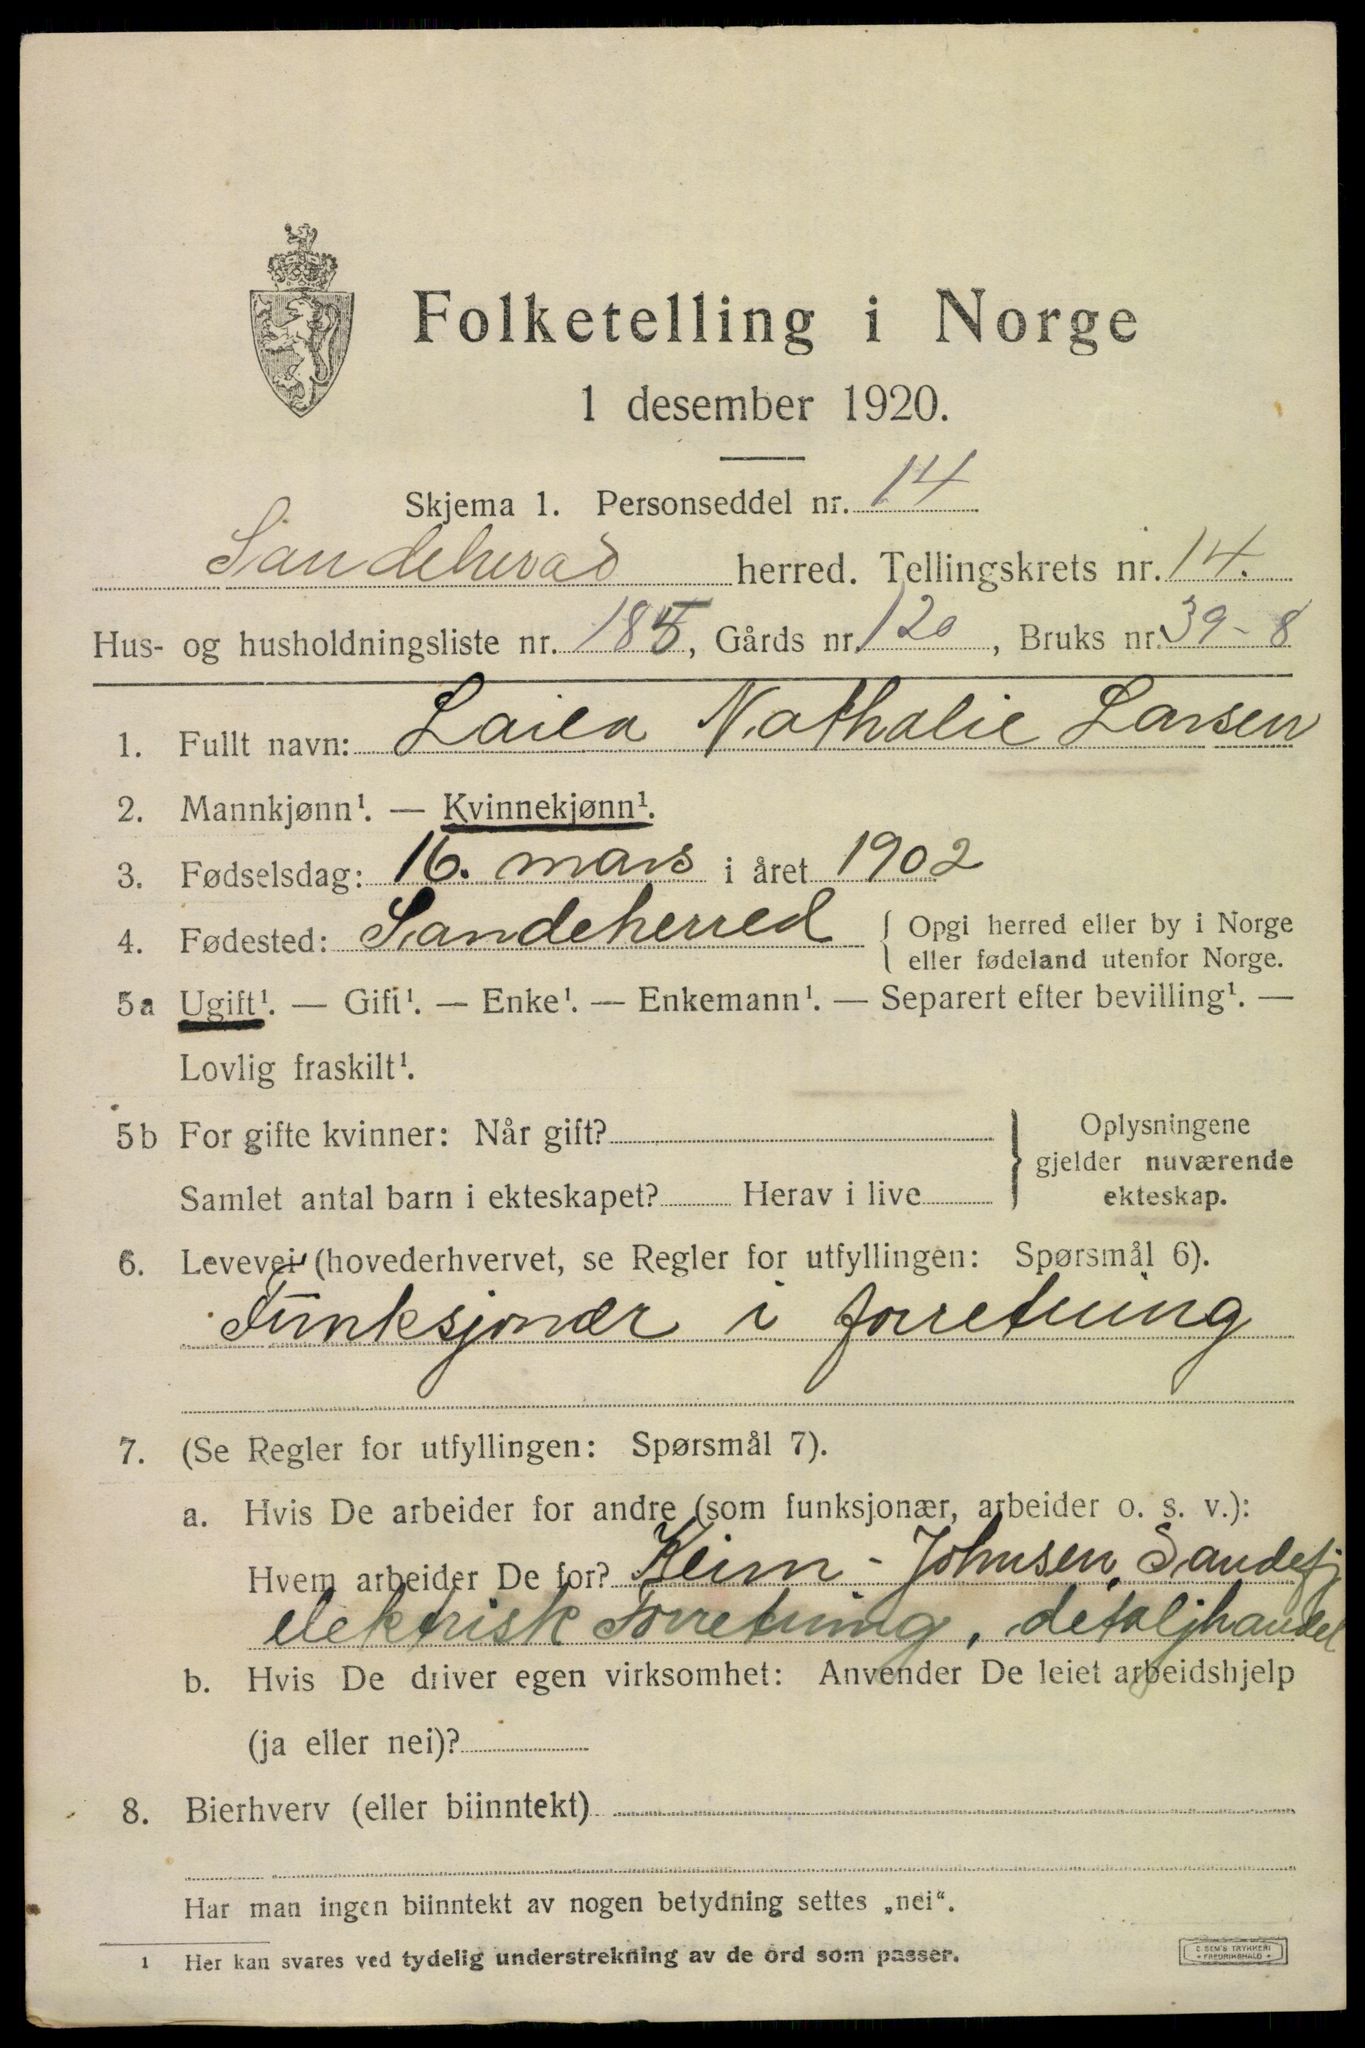 Folketelling i Norge
1 desember 1920.
Skjema 1. Personseddel nr. 14
Sandeherad herred. Tellingskrets nr. 14.
Hus- og husholdningsliste nr. 185, Gårds nr. 120, Bruks nr. 39-8
1. Fullt navn: Laila Nathalie Larsen
2. Mannkjønn¹. — Kvinnekjønn¹.
3. Fødselsdag: 16. mars i året 1902
4. Fødested: Sandeherred { Opgi herred eller by i Norge
eller fødeland utenfor Norge.
5a Ugift¹. — Gift¹. — Enke¹. — Enkemann¹. — Separert efter bevilling¹. —
Lovlig fraskilt¹.
5b For gifte kvinner: Når gift?
Samlet antal barn i ekteskapet? Herav i live
} Oplysningene
gjelder nuværende
ekteskap.
6. Levevei (hovederhvervet, se Regler for utfyllingen: Spørsmål 6).
Funksjonær i forretning
7. (Se Regler for utfyllingen: Spørsmål 7).
a. Hvis De arbeider for andre (som funksjonær, arbeider o. s. v.):
Hvem arbeider De for? Keim-Johnsen, Sandefj
elektrisk Forretning, detaljhandel
b. Hvis De driver egen virksomhet: Anvender De leiet arbeidshjelp
(ja eller nei)?
8. Bierhverv (eller biinntekt)
Har man ingen biinntekt av nogen betydning settes „nei“.
1 Her kan svares ved tydelig understrekning av de ord som passer.
E. SEM'S TRYKKERI
• FREDRIKSHALD •